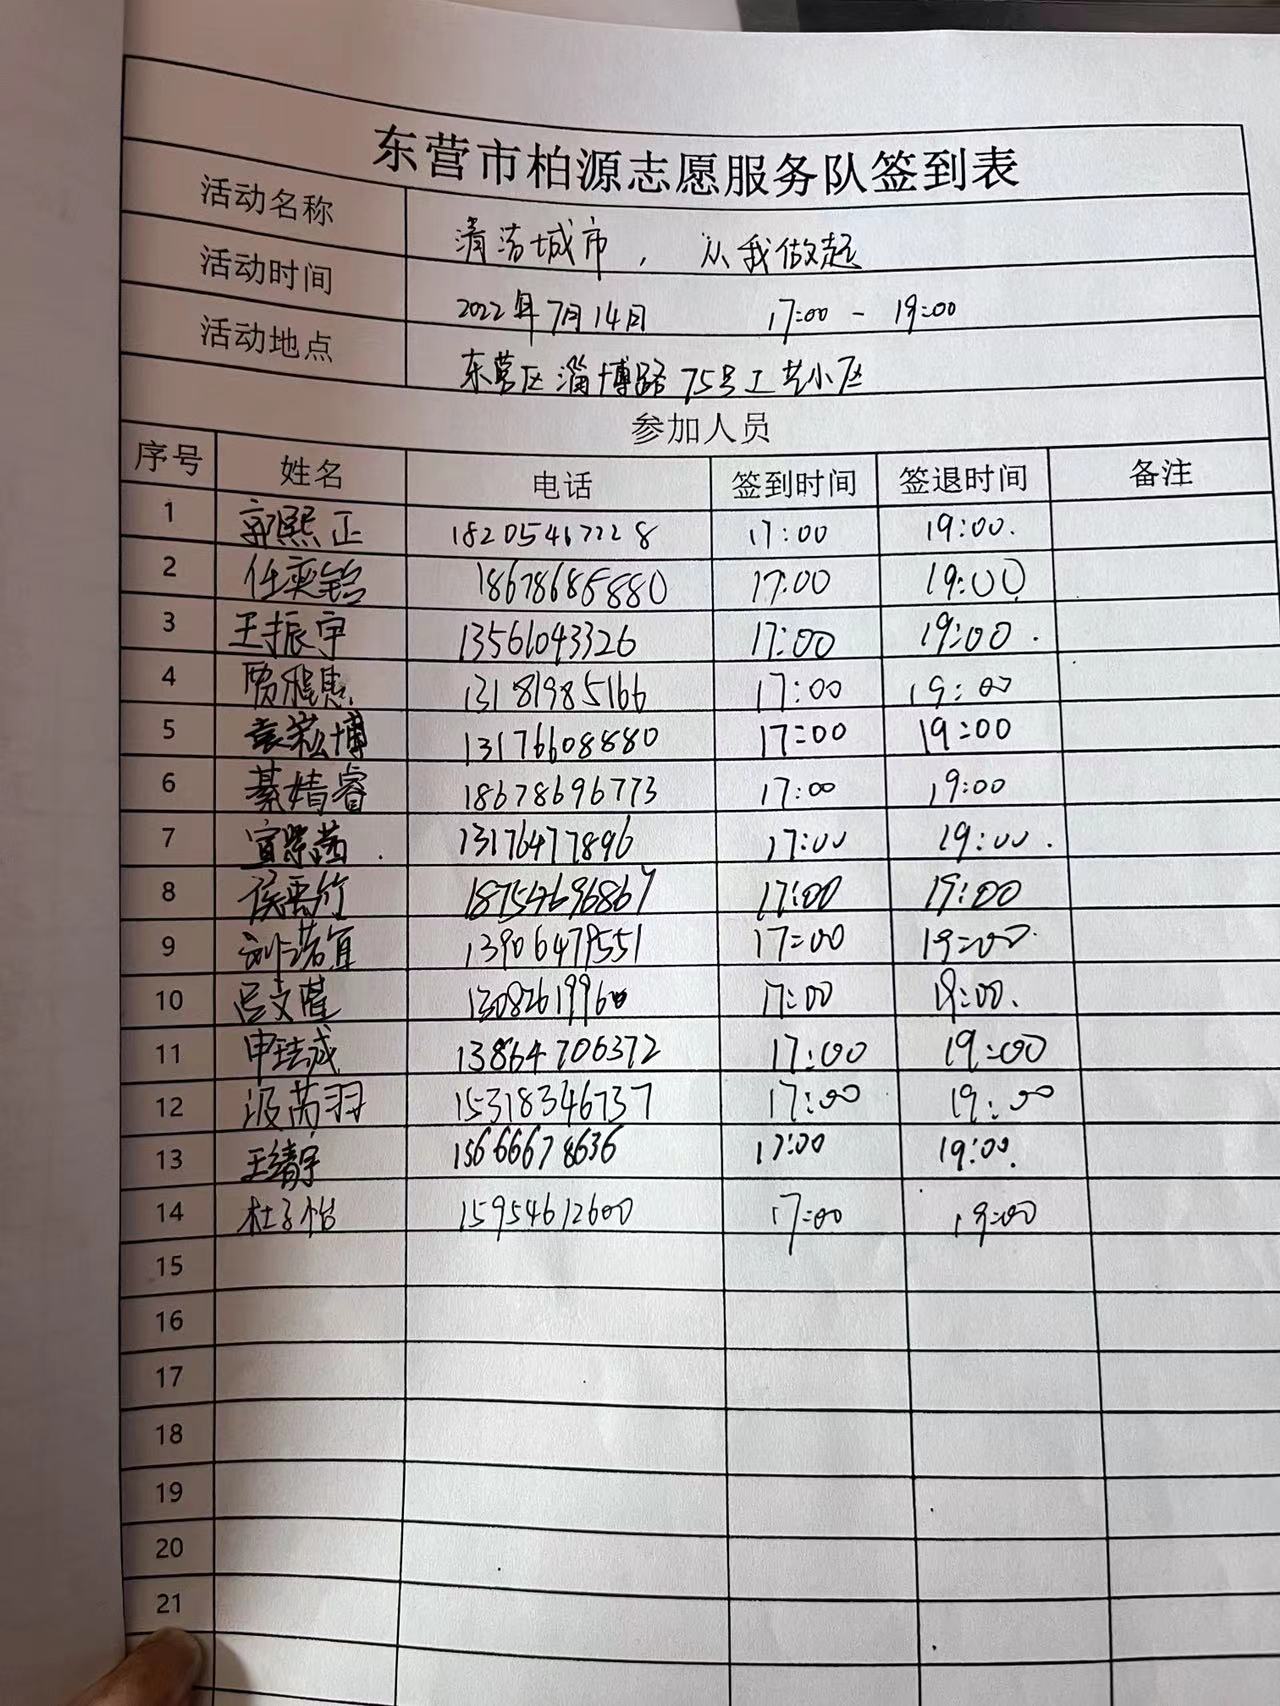 东营市柏源志愿服务队签到表
活动名称 清洁城市，从我做起
活动时间 2022年7月14日 17:00 - 19:00
活动地点 东营区淄博路75号工艺小区
参加人员
序号 姓名 电话 签到时间 签退时间 备注
1 郭熙正 18205467228 17:00 19:00.
2 任奕铭 18678685880 17:00 19:00
3 王振宇 13561043326 17:00 19:00.
4 贾雅惠 13181985166 17:00 19:00
5 袁崧博 13176608880 17:00 19:00
6 綦婧睿 18678696773 17:00 19:00
7 宣紫茜 13176477896 17:00 19:00.
8 侯雨竹 18754696867 17:00 19:00
9 刘诺宜 13906479551 17:00 19:00.
10 吕文瑾 17:00 19:00.
11 申珐诚 13864706372 17:00 19:00
12 汲芮羽 15318346737 17:00 19:00
13 王绪宇 15666678636 17:00 19:00.
14 杜子怡 15954612600 17:00 19:00
15
16
17
18
19
20
21